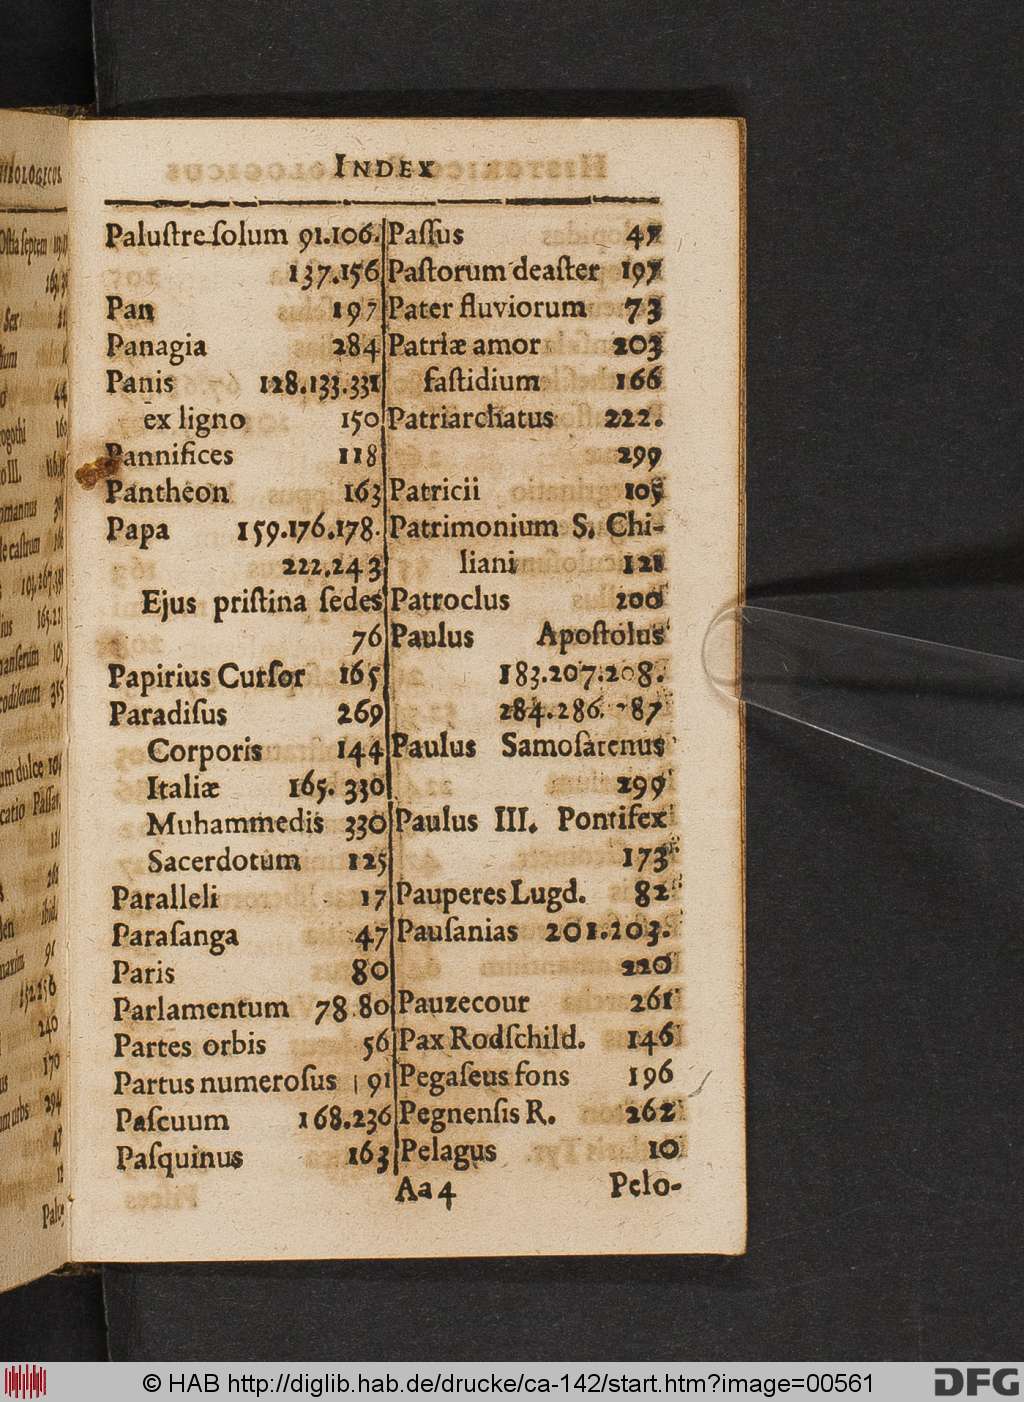 INDEX
Paluſtre ſolum 91.106.
137.156
Pan 197
Panagia 284
Panis 128.133.331
ex ligno 150
Pannifices 118
Pantheon 163
Papa 159.176.178.
222.243
Ejus priſtina ſedes
76
Papirius Curſor 165
Paradiſus 269
Corporis 144
Italiæ 165. 330
Muhammedis 330
Sacerdotum 125
Paralleli 17
Paraſanga 47
Paris 80
Parlamentum 78.80
Partes orbis 56
Partus numeroſus 91
Paſcuum 168.236
Paſquinus 163
Paſſus 47
Paſtorum deaſter 197
Pater fluviorum 73
Patriæ amor 203
faſtidium 166
Patriarchatus 222.
299
Patricii 105
Patrimonium S. Chi-
liani 121
Patroclus 200
Paulus Apoſtolus
183.207.208.
284.286. 87
Paulus Samoſatenus
299
Paulus III. Pontifex
173
Pauperes Lugd. 82
Pauſanias 201.203.
220
Pauzecour 261
Pax Rodſchild. 146
Pegaſeus fons 196
Pegnenſis R. 262
Pelagus 10
Aa 4 Pelo-
© HAB http://diglib.hab.de/drucke/ca-142/start.htm?image=00561
DFG